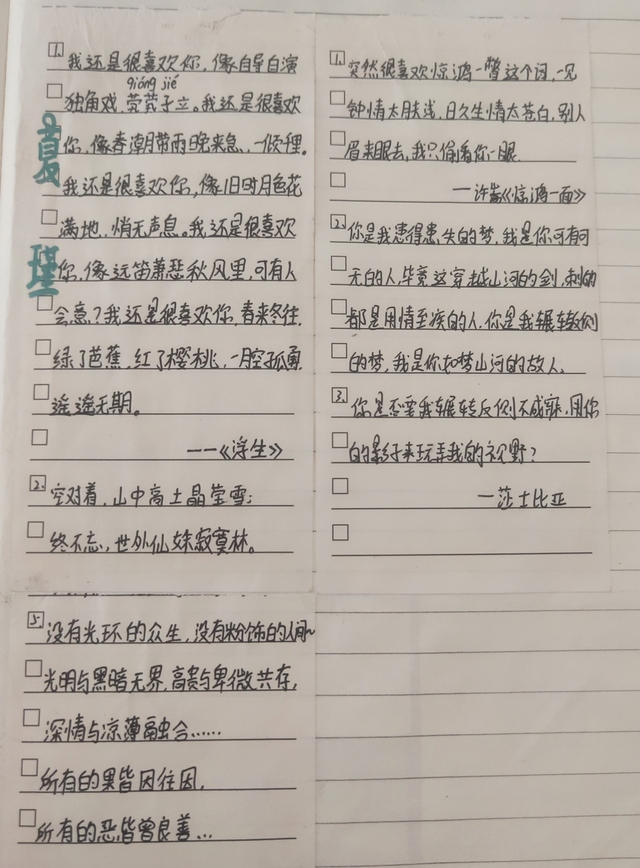 1. 我还是很喜欢你，像自导自演
qióng jié
独角戏，茕茕孑立。我还是很喜欢
你，像春潮带雨晚来急，一倾千里。
我还是很喜欢你，像旧时月色花
满地，悄无声息。我还是很喜欢
你，像远笛萧瑟秋风里，可有人
会意？我还是很喜欢你，春来冬往，
绿了芭蕉，红了樱桃，一月空孤勇
遥遥无期。
——《浮生》
2. 空对着，山中高士晶莹雪；
终不忘，世外仙姝寂寞林。
1. 突然很喜欢惊鸿一瞥这个词，一见
钟情太肤浅，日久生情太苍白，别人
眉来眼去，我只偷看你一眼。
—许嵩《惊鸿一面》
2. 你是我患得患失的梦，我是你可有可
无的人，毕竟这穿越山河的剑，刺的
都是用情至疾的人，你是我辗转
的梦，我是你如梦山河的故人。
3. 你是否要我辗转反侧不成寐，用你
的影子来玩弄我的视野？
—莎士比亚
5. 没有光环的众生，没有粉饰的人间~
光明与黑暗无界，高贵与卑微共存，
深情与凉薄融合……
所有的果皆因往因，
所有的恶皆曾良善…